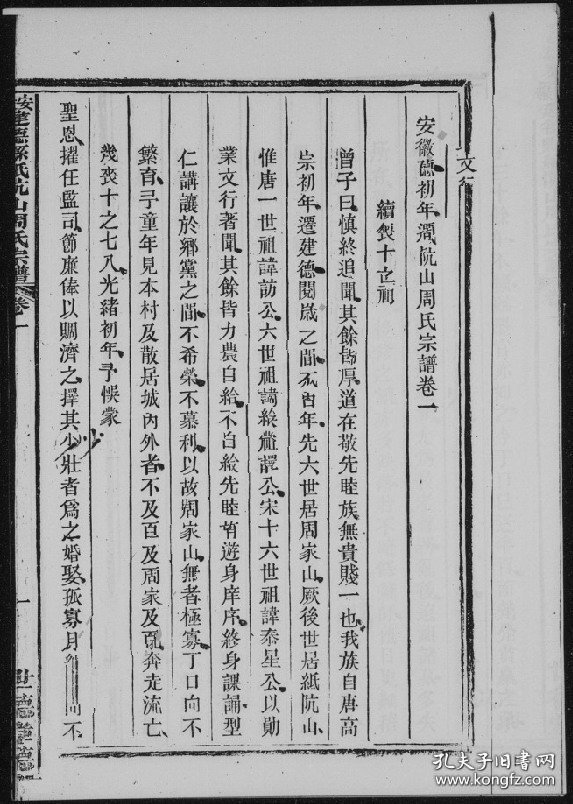 文行
安徽德初年遷阮山周氏宗譜卷一
續製十立祠
曾子曰慎終追聞其餘皆厚道在敬先睦族無貴賤一也我族自唐高
宗初年遷建德閱歲之間年先六世居周家山厥後世居紙阮山
惟唐一世祖諱訪公六世祖諱繇公宋十六世祖諱泰星公以勛
業文行者聞其餘皆力農自給不自給先睦皆遊身庠序終身課誦型
仁講讓於鄉黨之間不希榮不慕利以故周家山無者極寡丁口向不
繁育予童年見本村及散居城內外者不及百及周家及奔走流亡
幾喪十之七八光緒初年予恨蒙
聖恩擢任監司節廉俸以賙濟之擇其少壯者為之婚娶孤寡月 向不
建德縣紙阮山周氏宗譜 卷一
一
孔夫子旧书网
www.kongfz.com